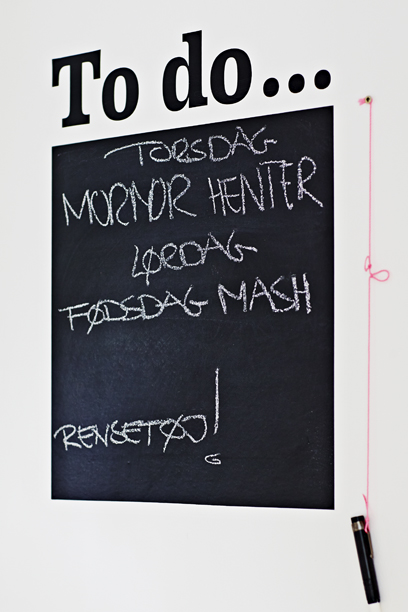 To do...
TORSDAG
MORMOR HENTER
LØRDAG
FØDSDAG MASH
RENSETØJ!